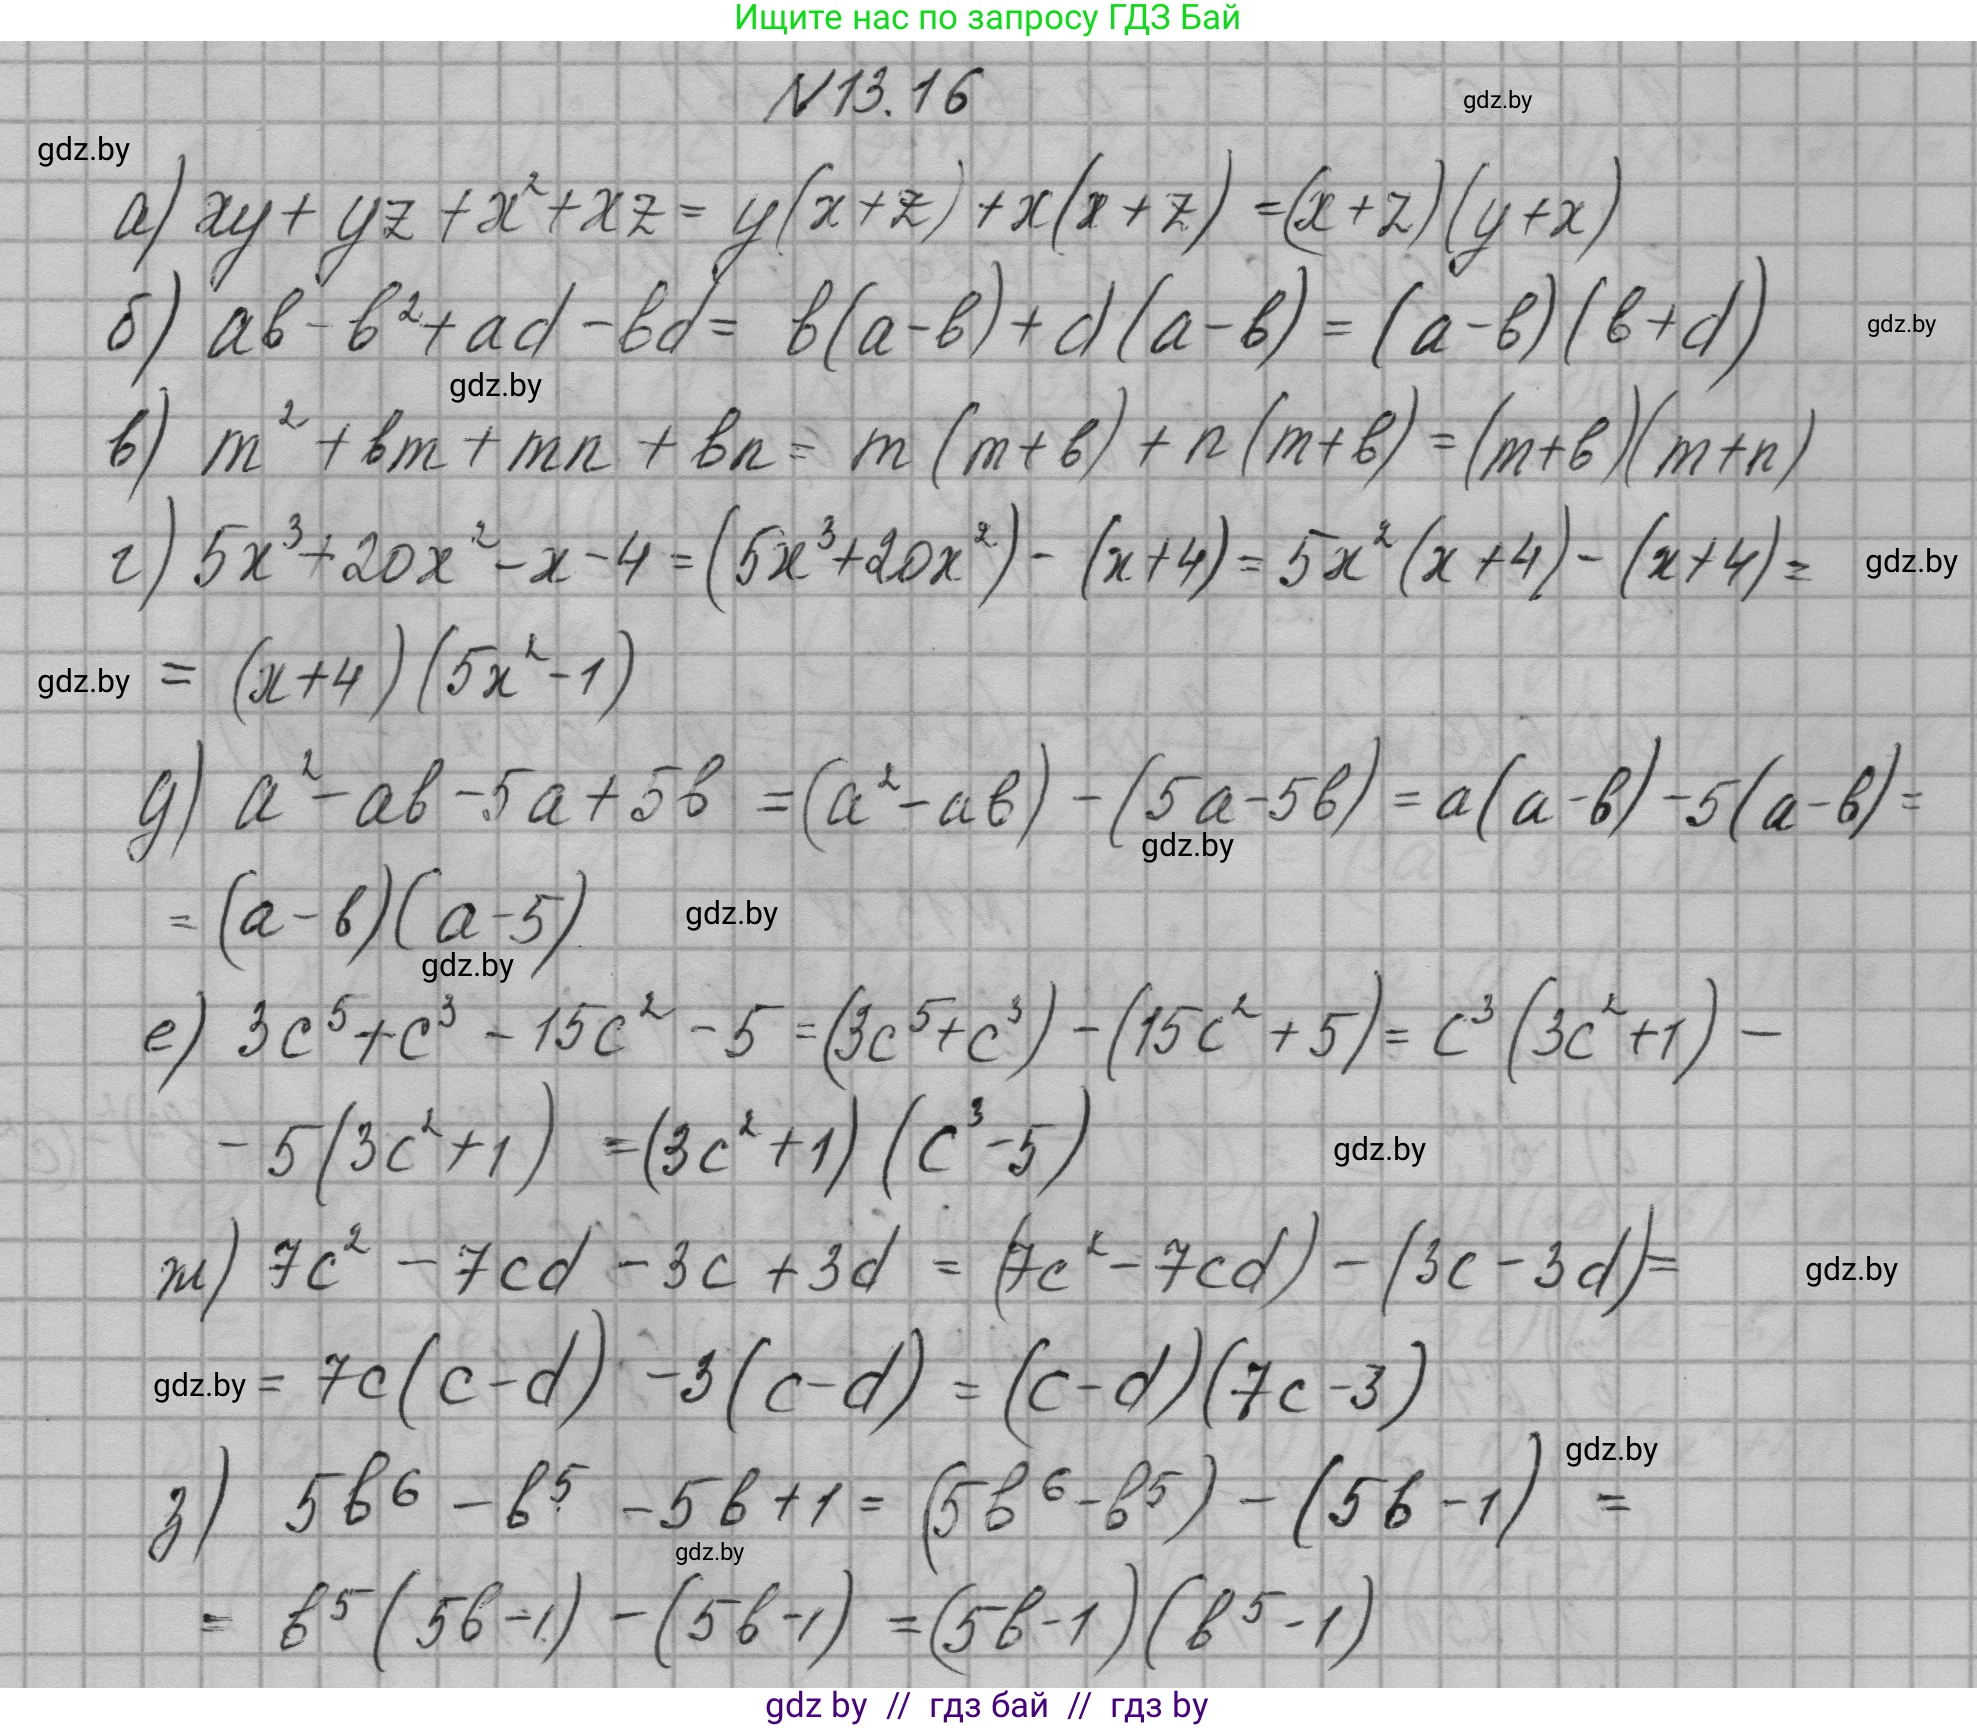 Ищите нас по запросу ГДЗ Бай
N13.16
gdz.by
gdz.by
а) xy + yz + x² + xz = y(x+z) + x(x+z) = (x+z)(y+x)
б) ab - b² + ad - bd = b(a-b) + d(a-b) = (a-b)(b+d)
gdz.by
gdz.by
в) m² + bm + mn + bn = m(m+b) + n(m+b) = (m+b)(m+n)
г) 5x³ + 20x² - x - 4 = (5x³ + 20x²) - (x+4) = 5x²(x+4) - (x+4) =
gdz.by
gdz.by
= (x+4)(5x² - 1)
д) a² - ab - 5a + 5b = (a² - ab) - (5a - 5b) = a(a-b) - 5(a-b) =
gdz.by
= (a-b)(a-5)
gdz.by
gdz.by
е) 3c⁵ + c³ - 15c² - 5 = (3c⁵ + c³) - (15c² + 5) = c³(3c² + 1) -
- 5(3c² + 1) = (3c² + 1)(c³ - 5)
gdz.by
ж) 7c² - 7cd - 3c + 3d = (7c² - 7cd) - (3c - 3d) =
gdz.by
gdz.by
= 7c(c-d) - 3(c-d) = (c-d)(7c-3)
gdz.by
з) 5b⁶ - b⁵ - 5b + 1 = (5b⁶ - b⁵) - (5b - 1) =
gdz.by
= b⁵(5b-1) - (5b-1) = (5b-1)(b⁵-1)
gdz by // гдз бай // гдз by